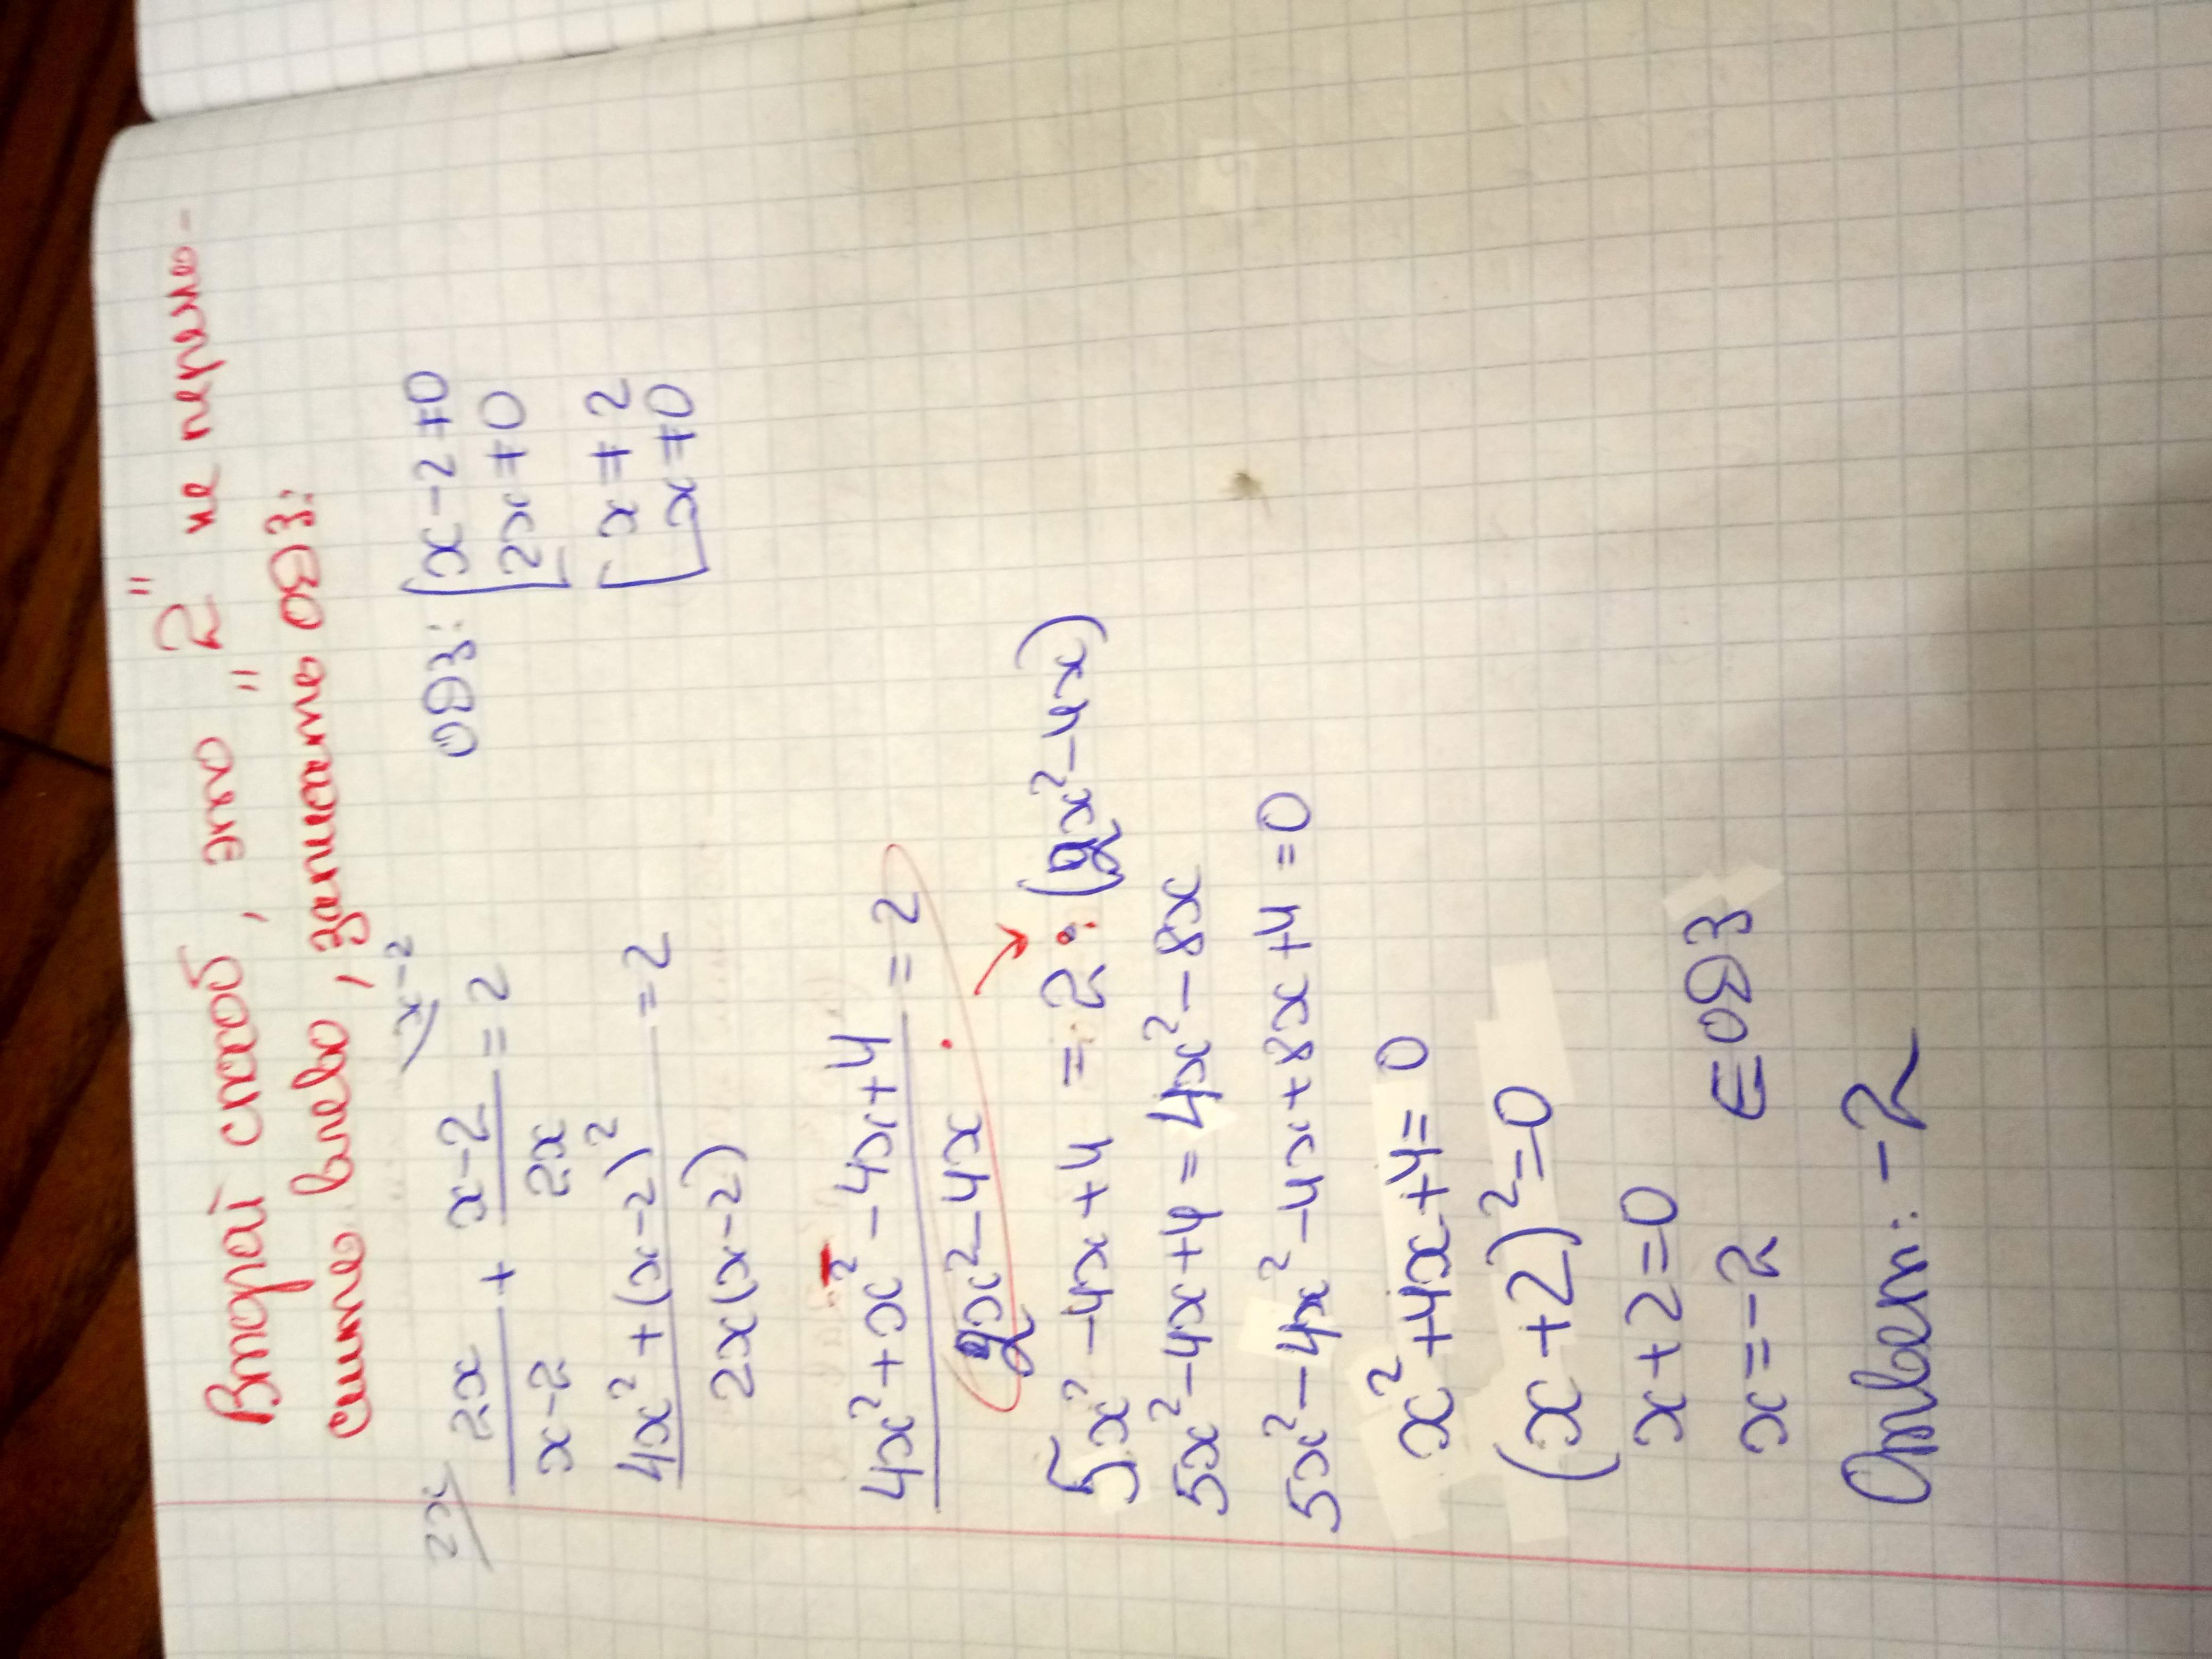 Второй способ, это "2" не перено-
сить влево, записать ОДЗ:
2x/ 2x/(x-2) + (x-2)/2x \x-2 = 2
ОДЗ: [x-2≠0
[2x≠0
[x≠2
[x≠0
(4x²+(x-2)²)/(2x(x-2)) = 2
(4x²+x²-4x+4)/(2x²-4x) = 2
5x²-4x+4 = 2 · (2x²-4x)
5x²-4x+4 = 4x²-8x
5x²-4x²-4x+8x+4=0
x²+4x+4=0
(x+2)²=0
x+2=0
x=-2 ∈ ОДЗ
Ответ: -2